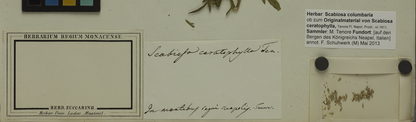 HERBARIUM REGIUM MONACENSE.
HERB. ZUCCARINII
Scabiosa ceratophylla Ten.
In montibus regni neapolit. Tenore
Herbar: Scabiosa columbaria
ob zum Originalmaterial von Scabiosa
ceratophylla, Tenore Fl. Napol.
Sammler: M. Tenore Fundort: [auf den
Bergen des Königreichs Neapel, Italien]
annot. F. Schuhwerk (M) Mai 2013